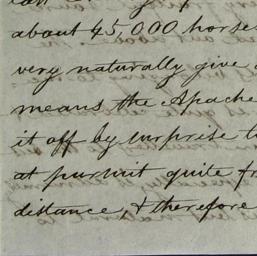 about 45,000 horses
very naturally give
means the Apache
it off by surprise
at pursuit quite
distance, & therefore